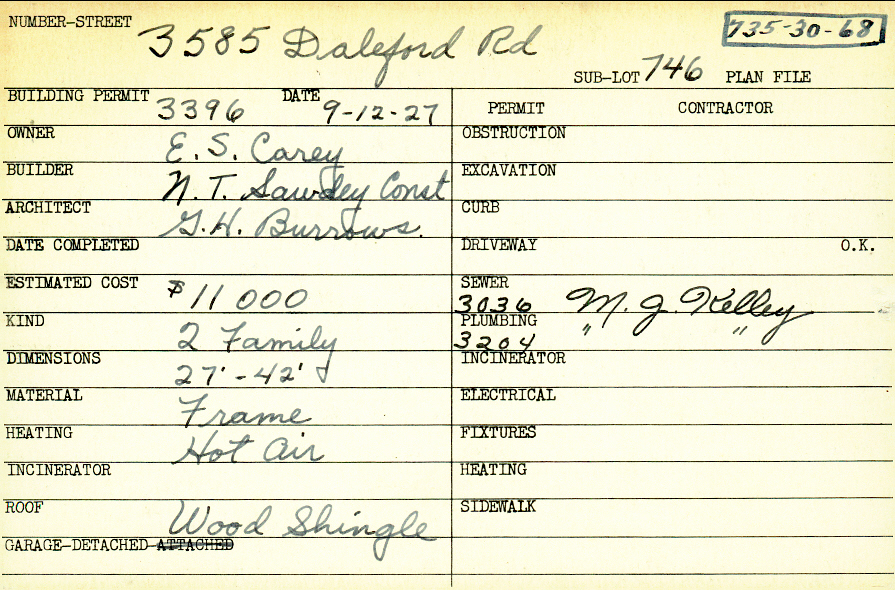 NUMBER-STREET 3585 Daleford Rd 735-30-68
SUB-LOT 746 PLAN FILE
BUILDING PERMIT 3396 DATE 9-12-27 PERMIT CONTRACTOR
OWNER E. S. Carey OBSTRUCTION
BUILDER N. T. Sawdey Const EXCAVATION
ARCHITECT G. H. Burrows. CURB
DATE COMPLETED DRIVEWAY O.K.
ESTIMATED COST $11 000 SEWER 3036 M. J. Kelley
KIND 2 Family PLUMBING 3204 " "
DIMENSIONS 27'-42' INCINERATOR
MATERIAL Frame ELECTRICAL
HEATING Hot Air FIXTURES
INCINERATOR HEATING
ROOF Wood Shingle SIDEWALK
GARAGE-DETACHED ATTACHED